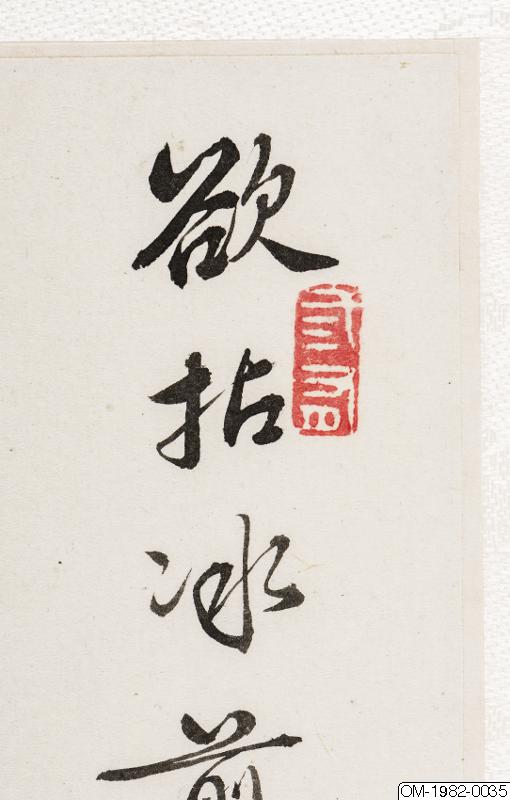 欲拈冰
OM-1982-0035